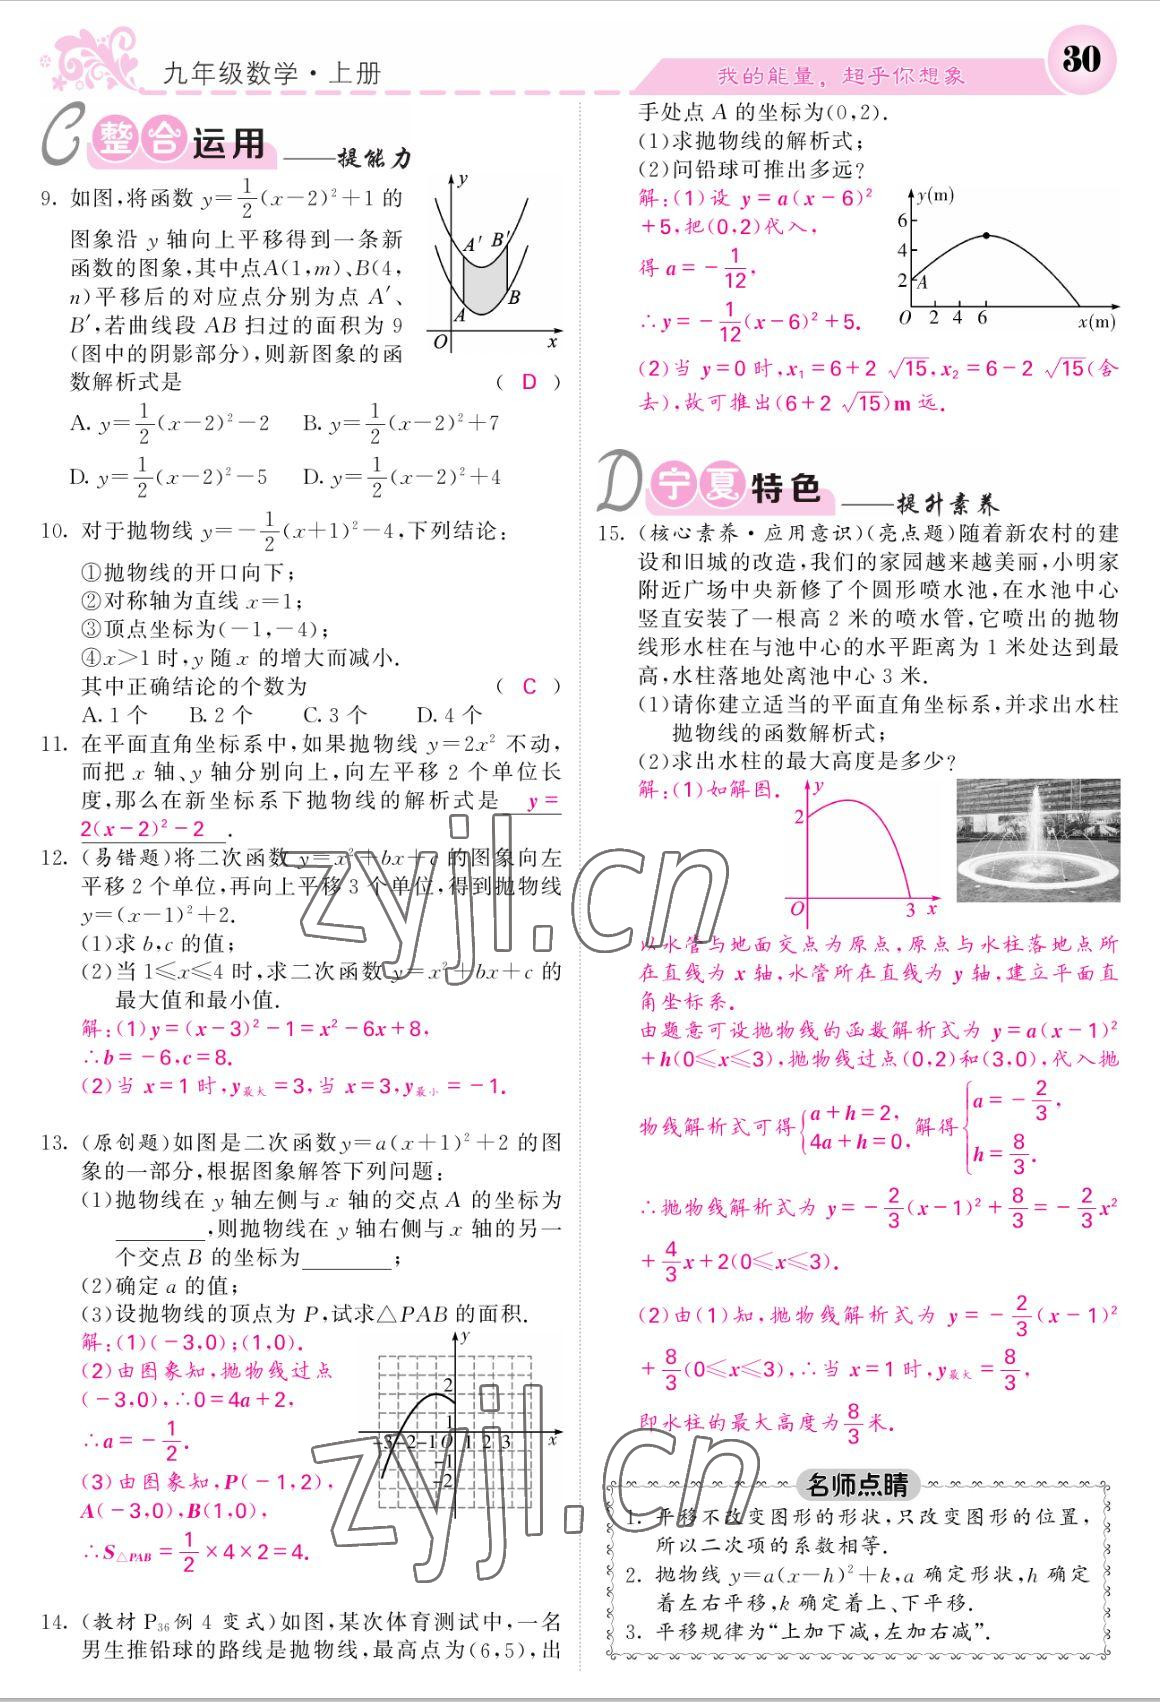 九年级数学·上册
我的能量，超乎你想象
30
C 整合运用 ——提能力
9. 如图,将函数 y=1/2(x-2)²+1 的
图象沿 y 轴向上平移得到一条新
函数的图象,其中点A(1,m)、B(4,
n)平移后的对应点分别为点 A′、
B′,若曲线段 AB 扫过的面积为 9
(图中的阴影部分),则新图象的函
数解析式是 ( D )
y
A′ B′
A
B
O x
A. y=1/2(x-2)²-2 B. y=1/2(x-2)²+7
D. y=1/2(x-2)²-5 D. y=1/2(x-2)²+4
10. 对于抛物线 y=-1/2(x+1)²-4,下列结论:
①抛物线的开口向下;
②对称轴为直线 x=1;
③顶点坐标为(-1,-4);
④x>1 时,y 随 x 的增大而减小.
其中正确结论的个数为 ( C )
A. 1 个 B. 2 个 C. 3 个 D. 4 个
11. 在平面直角坐标系中,如果抛物线 y=2x² 不动,
而把 x 轴、y 轴分别向上,向左平移 2 个单位长
度,那么在新坐标系下抛物线的解析式是 y=
2(x-2)²-2 .
12. (易错题)将二次函数 y=x²+bx+c 的图象向左
平移 2 个单位,再向上平移 3 个单位,得到抛物线
y=(x-1)²+2.
(1)求 b,c 的值;
(2)当 1≤x≤4 时,求二次函数 y=x²+bx+c 的
最大值和最小值.
解:(1)y=(x-3)²-1=x²-6x+8,
∴b=-6,c=8.
(2)当 x=1 时,y最大=3,当 x=3,y最小=-1.
13. (原创题)如图是二次函数y=a(x+1)²+2 的图
象的一部分,根据图象解答下列问题:
(1)抛物线在 y 轴左侧与 x 轴的交点 A 的坐标为
________,则抛物线在 y 轴右侧与 x 轴的另一
个交点 B 的坐标为________;
(2)确定 a 的值;
(3)设抛物线的顶点为 P,试求△PAB 的面积.
解:(1)(-3,0);(1,0).
(2)由图象知,抛物线过点
(-3,0),∴0=4a+2,
∴a=-1/2.
(3)由图象知,P(-1,2),
A(-3,0),B(1,0),
∴S△PAB=1/2×4×2=4.
y
2
1
-3-2-1 O 1 2 3 x
-1
-2
14. (教材 P36例 4 变式)如图,某次体育测试中,一名
男生推铅球的路线是抛物线,最高点为(6,5),出
手处点 A 的坐标为(0,2).
(1)求抛物线的解析式;
(2)问铅球可推出多远?
解:(1)设 y=a(x-6)²
+5,把(0,2)代入,
得 a=-1/12,
∴y=-1/12(x-6)²+5.
y(m)
6
4
2 A
O 2 4 6 x(m)
(2)当 y=0 时,x₁=6+2√15,x₂=6-2√15(舍
去),故可推出(6+2√15)m 远.
D 宁夏特色 ——提升素养
15. (核心素养·应用意识)(亮点题)随着新农村的建
设和旧城的改造,我们的家园越来越美丽,小明家
附近广场中央新修了个圆形喷水池,在水池中心
竖直安装了一根高 2 米的喷水管,它喷出的抛物
线形水柱在与池中心的水平距离为 1 米处达到最
高,水柱落地处离池中心 3 米.
(1)请你建立适当的平面直角坐标系,并求出水柱
抛物线的函数解析式;
(2)求出水柱的最大高度是多少?
解:(1)如解图.
y
2
O 3 x
以水管与地面交点为原点,原点与水柱落地点所
在直线为 x 轴,水管所在直线为 y 轴,建立平面直
角坐标系.
由题意可设抛物线的函数解析式为 y=a(x-1)²
+h(0≤x≤3),抛物线过点(0,2)和(3,0),代入抛
物线解析式可得{a+h=2, 4a+h=0, 解得{a=-2/3, h=8/3.
∴抛物线解析式为 y=-2/3(x-1)²+8/3=-2/3x²
+4/3x+2(0≤x≤3).
(2)由(1)知,抛物线解析式为 y=-2/3(x-1)²
+8/3(0≤x≤3),∴当 x=1 时,y最大=8/3,
即水柱的最大高度为8/3米.
名师点睛
1. 平移不改变图形的形状,只改变图形的位置,
所以二次项的系数相等.
2. 抛物线 y=a(x-h)²+k,a 确定形状,h 确定
着左右平移,k 确定着上、下平移.
3. 平移规律为“上加下减,左加右减”.
zyjl.cn
zyjl.cn